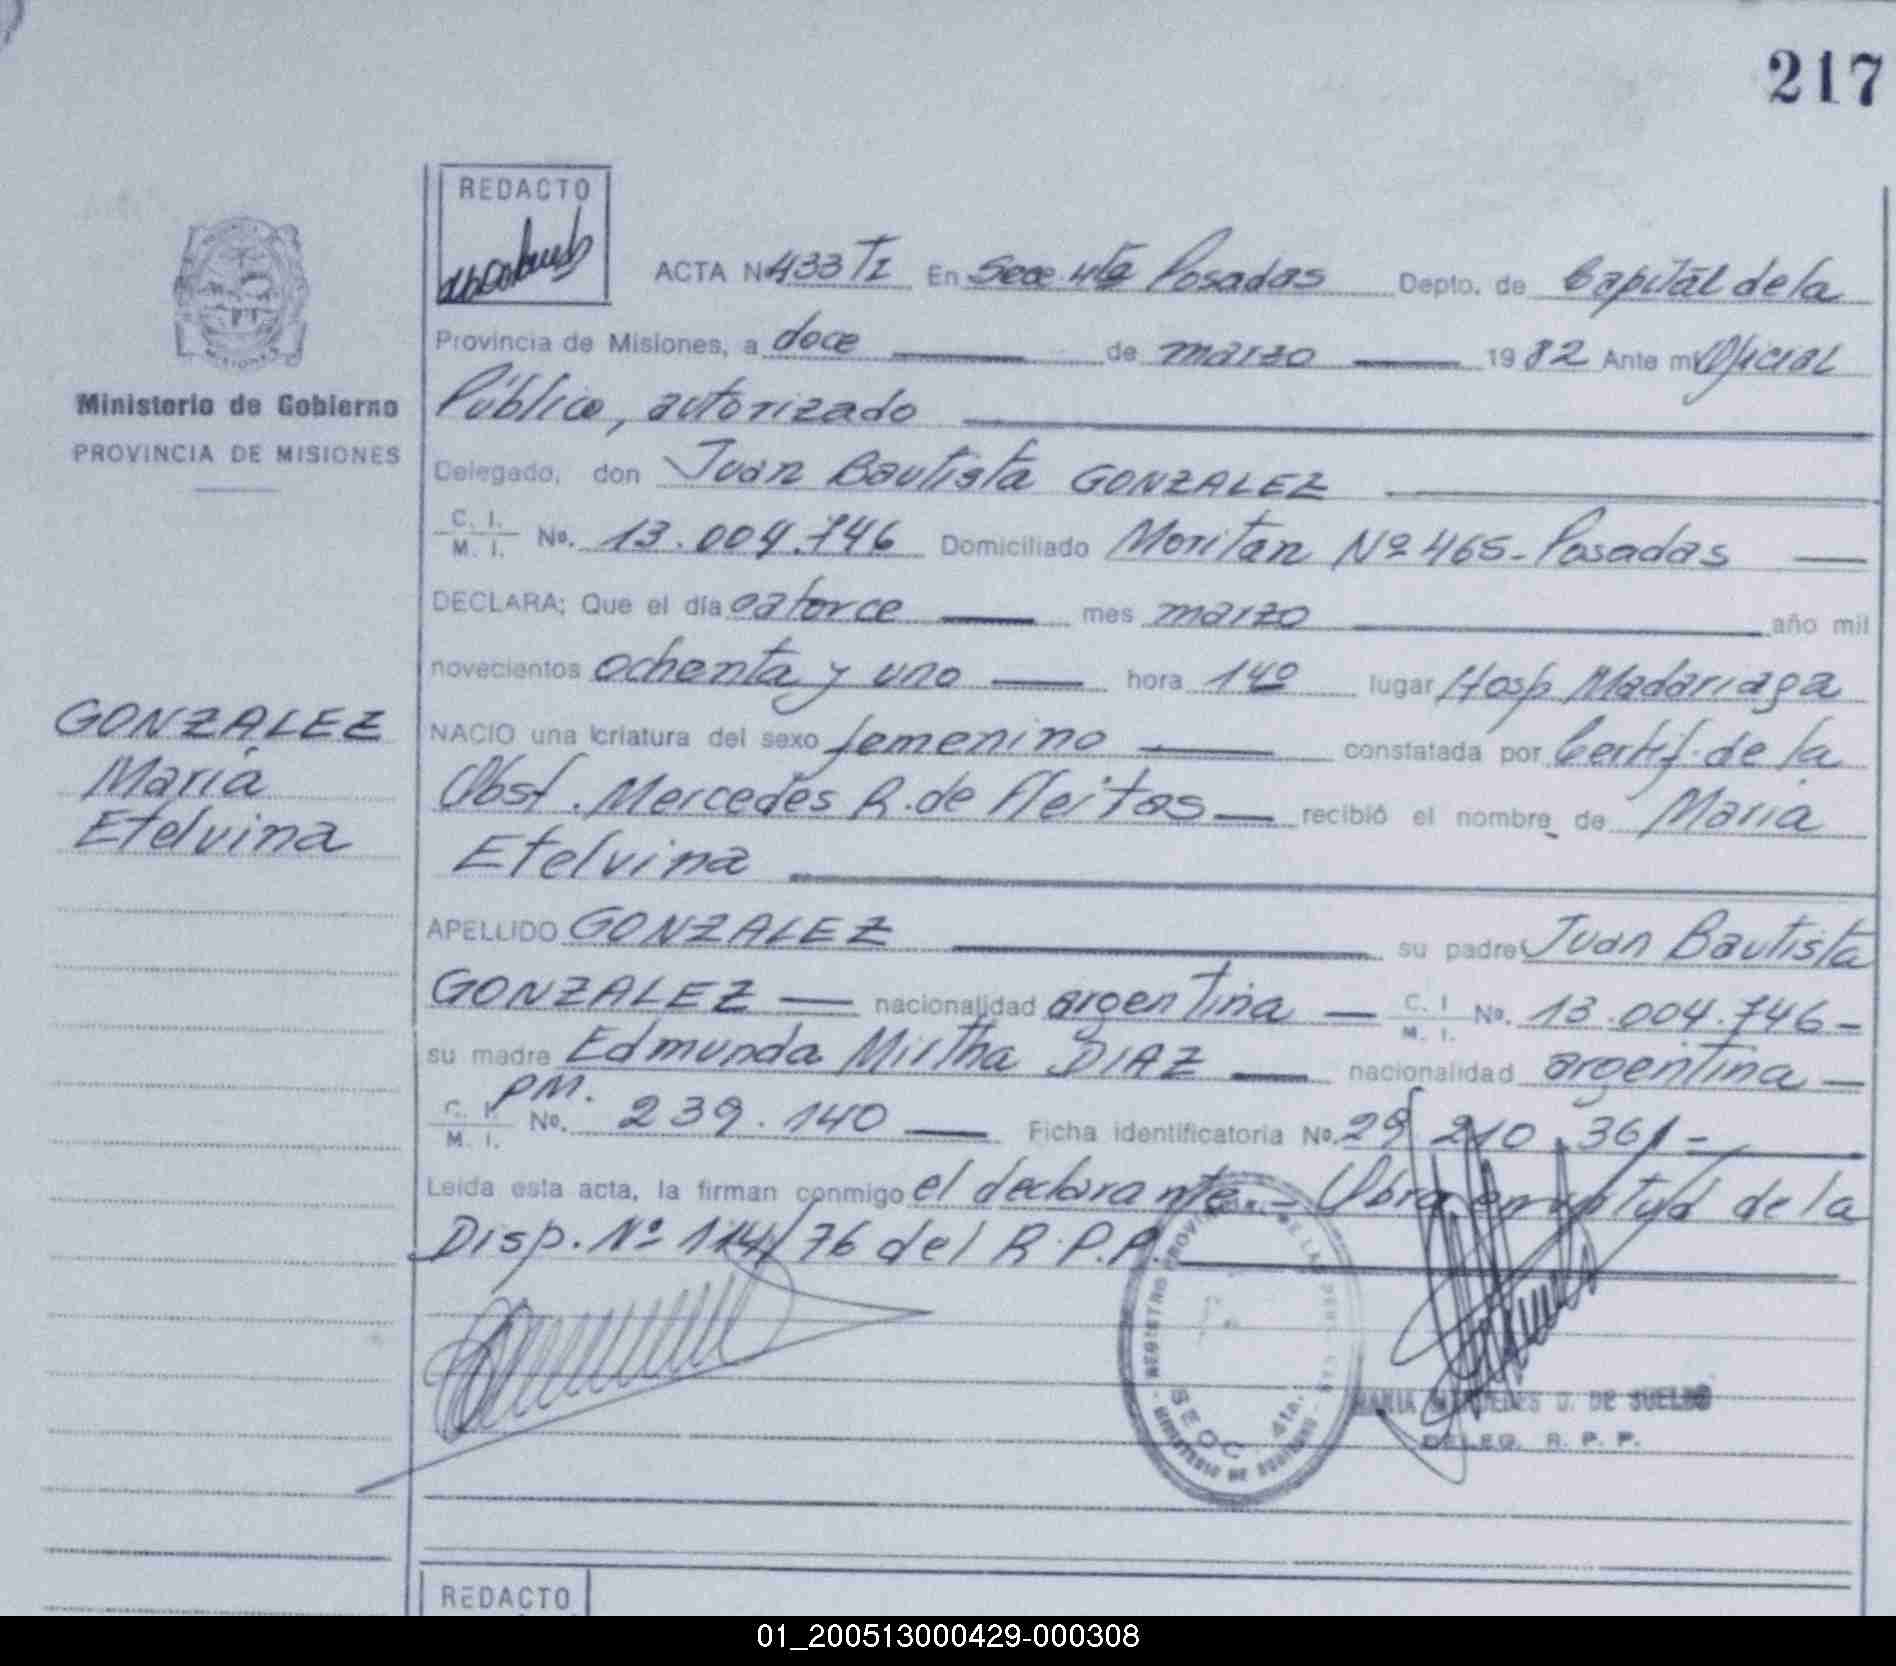 217
REDACTO
ACTA Nº 433 TI En Secc. 4ta Posadas Depto. de Capital de la
Provincia de Misiones, a doce de marzo 1982 Ante mi Oficial
Público, autorizado
Ministerio de Gobierno
PROVINCIA DE MISIONES
MISIONES
Delegado, don Juan Bautista GONZALEZ
C. I. M. I. No. 13.004.746 Domiciliado Moritan Nº 465 - Posadas
DECLARA; Que el día catorce mes marzo año mil
novecientos ochenta y uno hora 14º lugar Hosp. Madariaga
NACIO una criatura del sexo femenino constatada por Certif. de la
Obst. Mercedes R. de Fleitas recibió el nombre de María
Etelvina
GONZALEZ
María
Etelvina
APELLIDO GONZALEZ su padre Juan Bautista
GONZALEZ nacionalidad argentina C. I. M. I. No. 13.004.746 -
su madre Edmunda Mirtha DIAZ nacionalidad argentina
C. I. M. I. PM. No. 239.140 Ficha identificatoria No. 29.210.361 -
Leída esta acta, la firman conmigo el declarante. - Obra en virtud de la
Disp. Nº 114/76 del R.P.P.
REGISTRO PROVINCIAL DE LAS PERSONAS
SECC 4ta.
MINISTERIO DE GOBIERNO
MARIA MERCEDES D. DE SUELDO
DELEG. R. P. P.
REDACTO
01_200513000429-000308